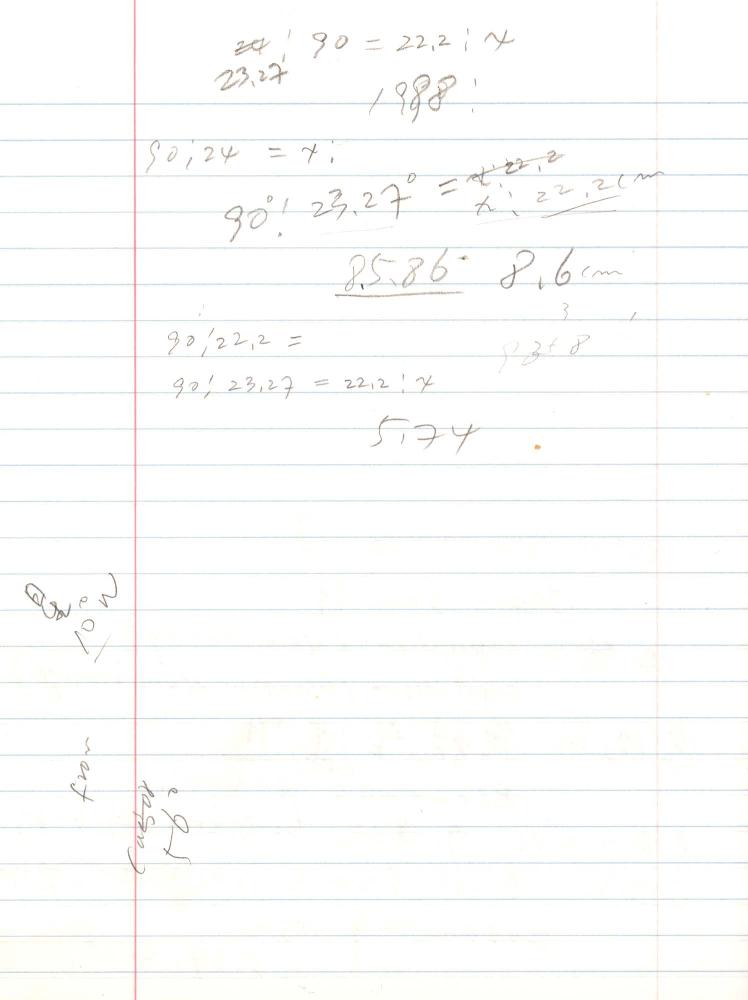 23.27 : 90 = 22.2 : x
1988 :
90 : 24 = x :
90° : 23.27° = x : 22.2 cm
85.86 8.6 cm
3
90 : 22.2 =
90 : 23.27 = 22.2 : x
5.74
10
from